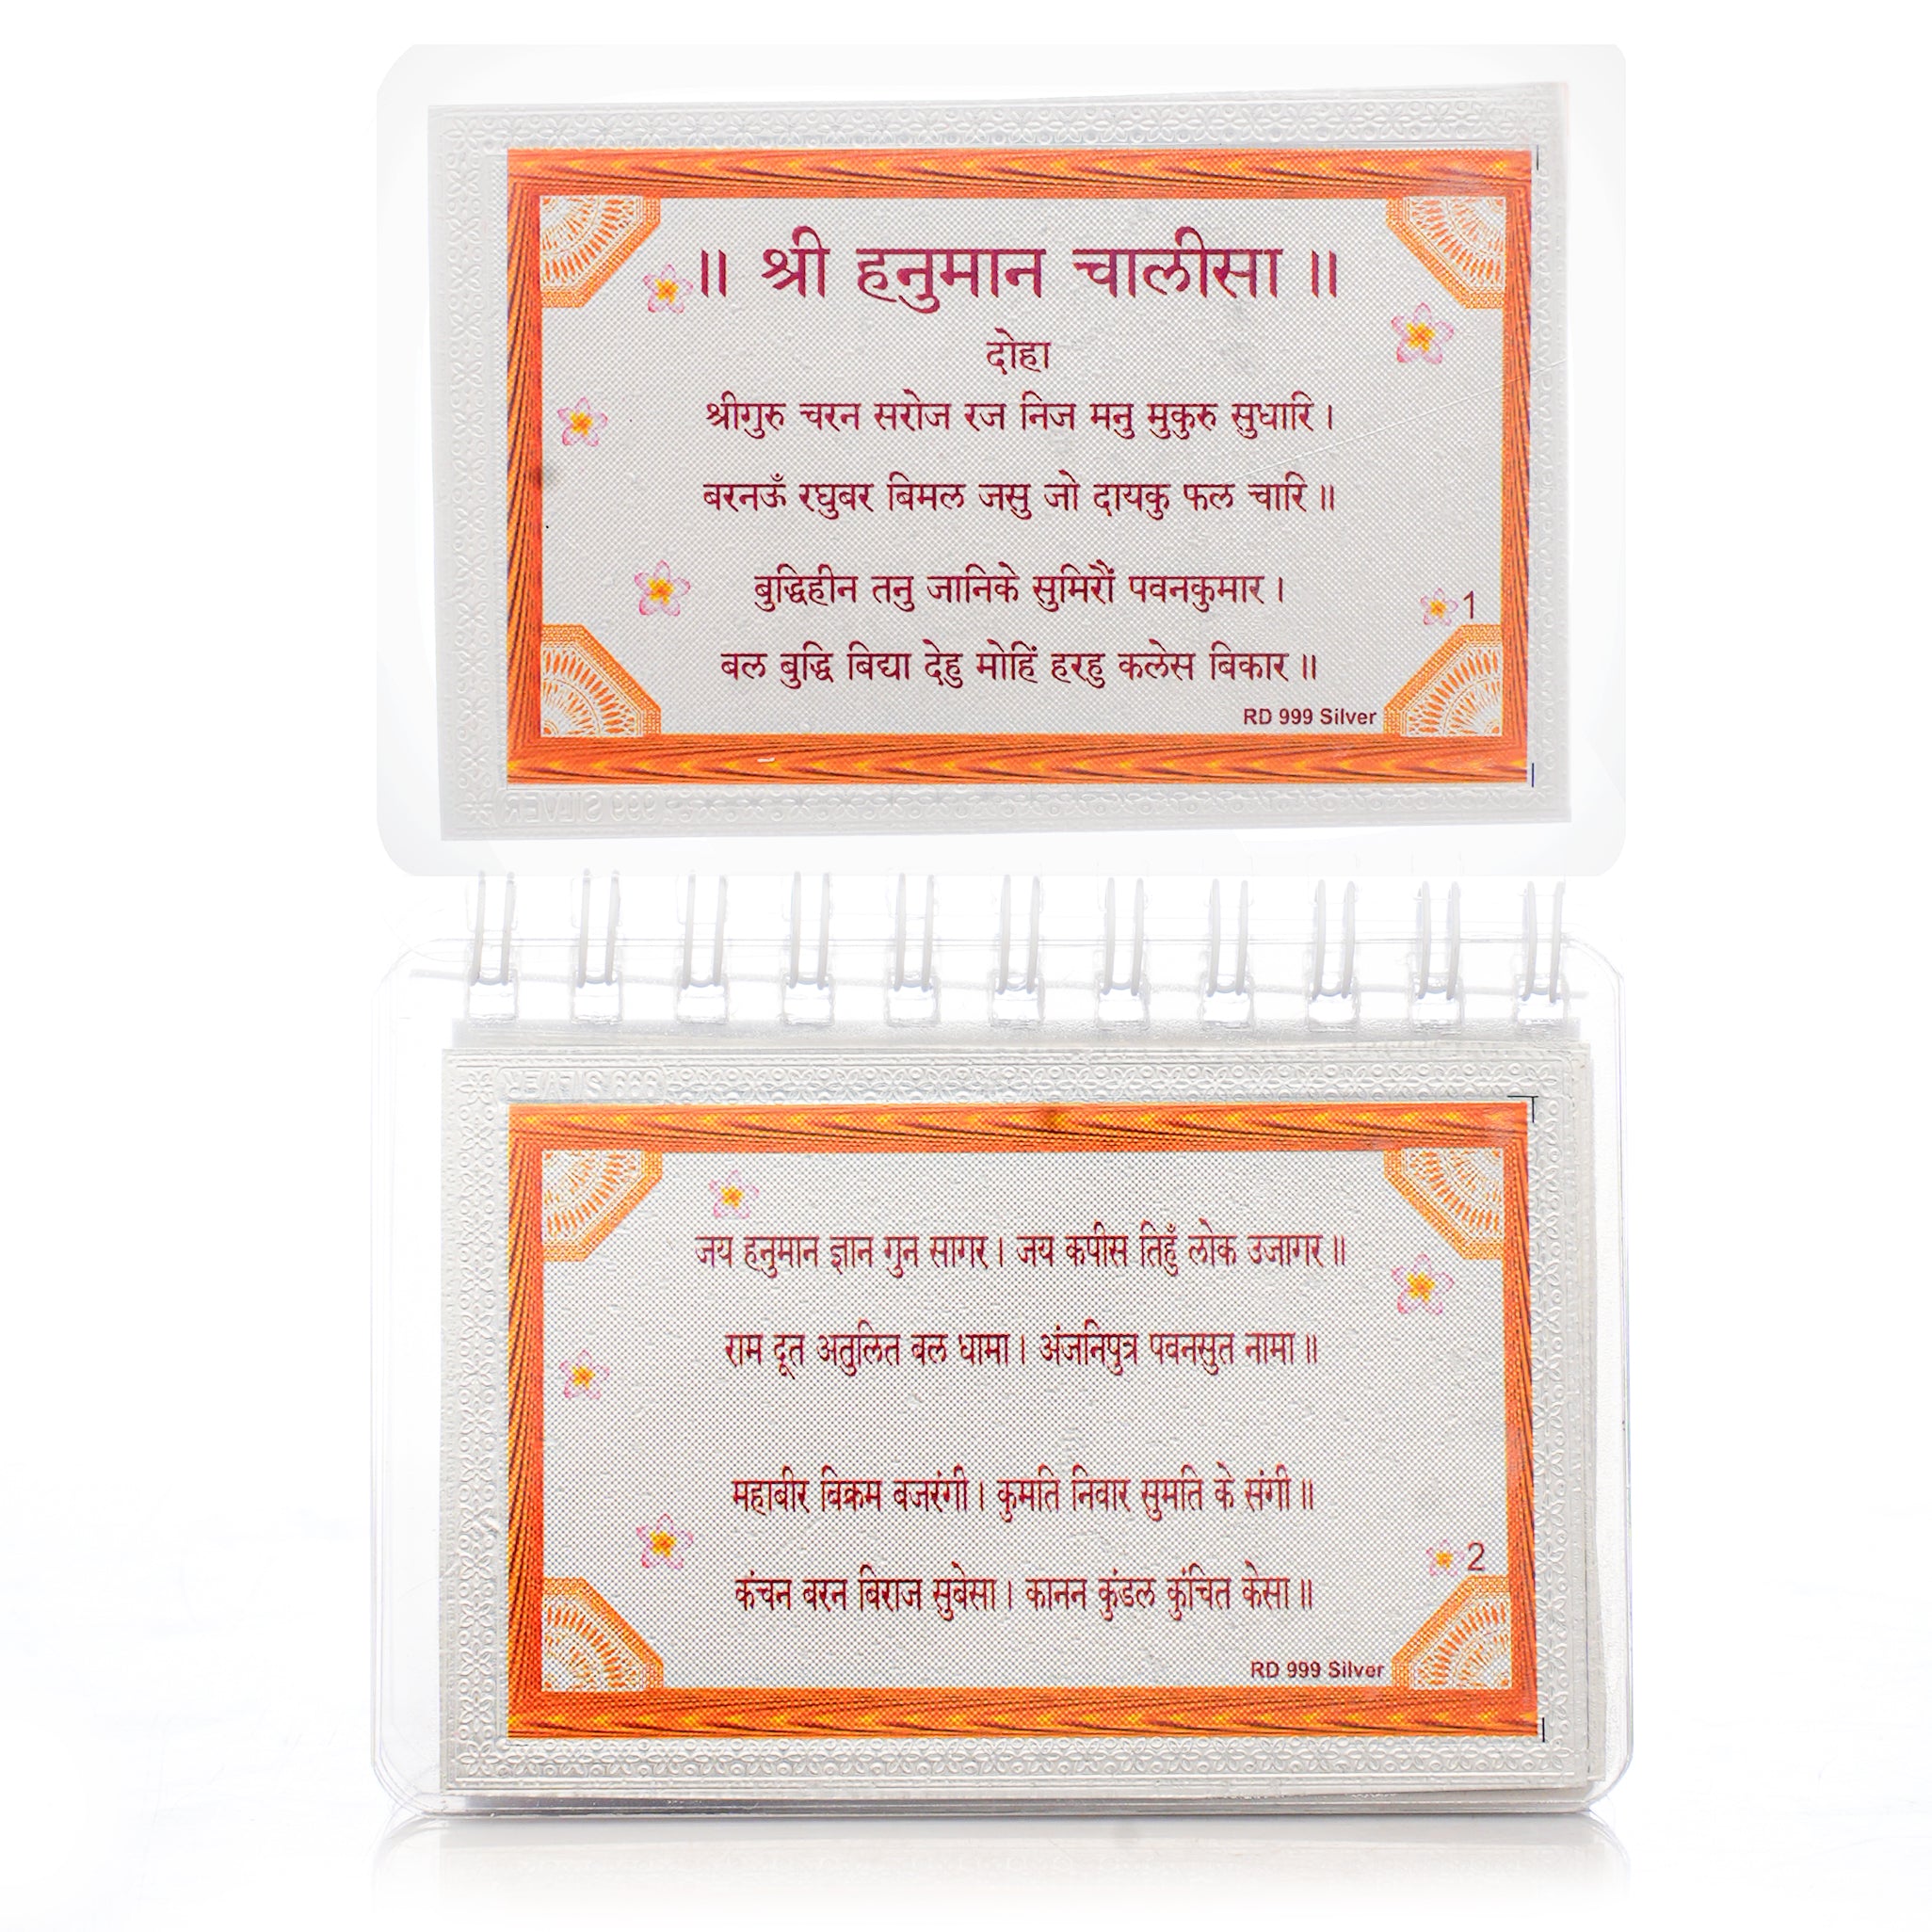 ॥ श्री हनुमान चालीसा ॥
दोहा
श्रीगुरु चरन सरोज रज निज मनु मुकुरु सुधारि।
बरनऊँ रघुबर बिमल जसु जो दायकु फल चारि॥
बुद्धिहीन तनु जानिके सुमिरौं पवनकुमार।
1
बल बुद्धि बिद्या देहु मोहिं हरहु कलेस बिकार॥
RD 999 Silver
999 SILVER
999 SILVER
जय हनुमान ज्ञान गुन सागर। जय कपीस तिहुँ लोक उजागर॥
राम दूत अतुलित बल धामा। अंजनिपुत्र पवनसुत नामा॥
महाबीर बिक्रम बजरंगी। कुमति निवार सुमति के संगी॥
2
कंचन बरन बिराज सुबेसा। कानन कुंडल कुंचित केसा॥
RD 999 Silver